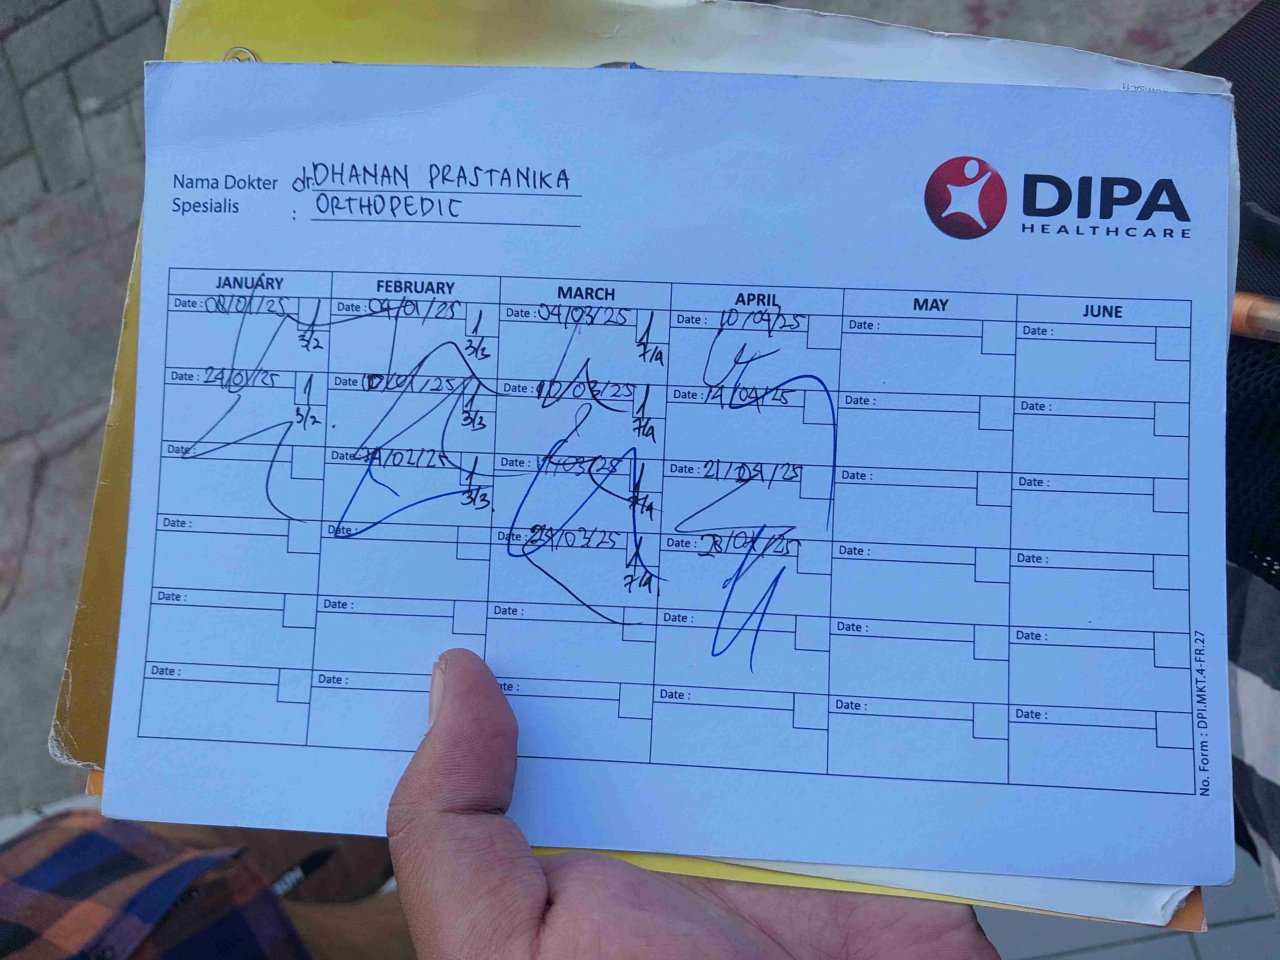 Nama Dokter dr. DHANAN PRASTANIKA
Spesialis : ORTHOPEDIC
DIPA
HEALTHCARE
JANUARY FEBRUARY MARCH APRIL MAY JUNE
Date : 08/01/25 Date : 04/01/25 Date : 04/03/25 Date : 10/04/25 Date : Date :
3/2 3/3 7/4
Date : 24/01/25 Date : Date : 10/03/25 Date : 14/04/25 Date : Date :
3/2 3/3 7/4
Date : Date : /02/25 Date : /03/25 Date : 21/04/25 Date : Date :
3/3 7/4
Date : Date : Date : 25/03/25 Date : 28/04/25 Date : Date :
7/4
Date : Date : Date : Date : Date : Date :
Date : Date : Date : Date : Date : Date :
No. Form : DPI.MKT.4-FR.27